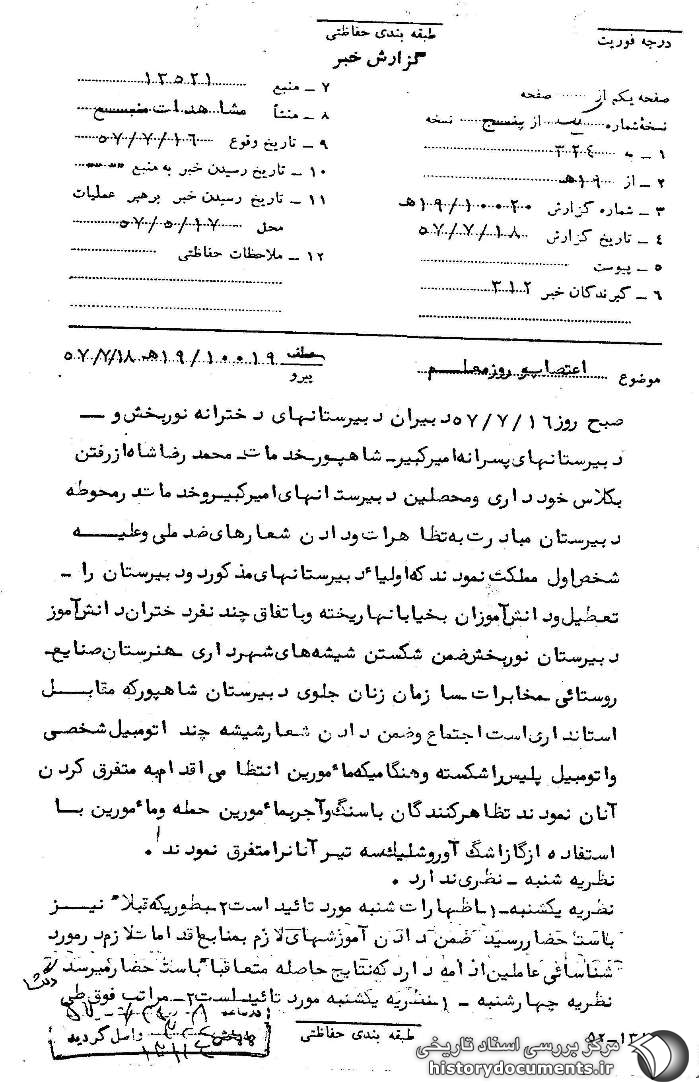 درجه فوریت
طبقه بندی حفاظتی
گزارش خبر
صفحه یکم از ...... صفحه
نسخه شماره از پنج نسخه
۱ ـ به ۳۲۴
۲ ـ از ۱۹هـ
۳ ـ شماره گزارش ۱۹/۱۰۰۲۰هـ
۴ ـ تاریخ گزارش ۵۷/۷/۱۸
۵ ـ پیوست
۶ ـ گیرندگان خبر ۳۱۲
۷ ـ منبع ۱۳۵۲۱
۸ ـ منشأ مشاهدات منبع
۹ ـ تاریخ وقوع ۵۷/۷/۱۶
۱۰ ـ تاریخ رسیدن خبر به منبع
۱۱ ـ تاریخ رسیدن خبر برهبر عملیات
محل ۵۷/۵/۱۷
۱۲ ـ ملاحظات حفاظتی
موضوع اعتصاب روز معلم
عطف ۱۹/۱۰۰۱۹هـ ۵۷/۷/۱۸
پیرو
صبح روز ۵۷/۷/۱۶ دبیران دبیرستانهای دخترانه نوربخش و ـ
دبیرستانهای پسرانه امیرکبیر ـ شاهپور ـ خدمات ـ محمد رضا شاه از رفتن
بکلاس خودداری ومحصلین دبیرستانهای امیرکبیر و خدمات در محوطه
دبیرستان مبادرت به تظاهرات و دادن شعارهای ضد ملی و علیـــه
شخص اول مملکت نمودند که اولیاء دبیرستانهای مذکور دو دبیرستان را ـ
تعطیل و دانش آموزان بخیابانها ریخته و باتفاق چند نفر دختران دانش آموز
دبیرستان نوربخش ضمن شکستن شیشه های شهرداری ـ هنرستان صنایع ـ
روستائی ـ مخابرات ـ سازمان زنان جلوی دبیرستان شاهپور که مقابـــل
استانداری است اجتماع و ضمن دادن شعار شیشه چند اتومبیل شخصی
و اتومبیل پلیس را شکسته و هنگامیکه مأمورین انتظامی اقدام به متفرق کردن
آنان نمودند تظاهرکنندگان با سنگ و آجر بمأمورین حمله و مأمورین بـــا
استفاده از گاز اشگ آور و شلیک سه تیر آنانرا متفرق نمودند.
نظریه شنبه ـ نظری ندارد .
نظریه یکشنبه ـ ۱ـ اظهارات شنبه مورد تائید است ۲ـ بطوریکه قبلاً نیـــز
باستحضار رسید ضمن دادن آموزشهای لازم بمنابع اقدامات لازم در مورد
شناسائی عاملین ادامه دارد که نتایج حاصله متعاقباً باستحضار میرسد
نظریه چهارشنبه ـ ۱ـ نظریه یکشنبه مورد تائید است ۲ـ مراتب فوق طی
واصل گردید
طبقه بندی حفاظتی
مرکز بررسی اسناد تاریخی
historydocuments.ir